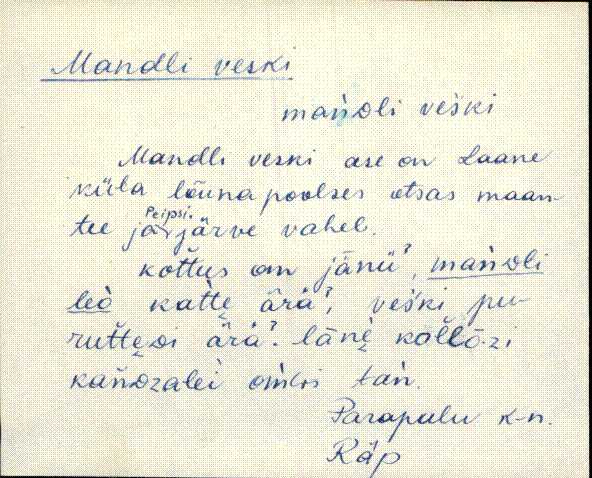 Mandli veski
mańdli veški
Mandli veski ase on Laane
küla lõunapoolses otsas maan-
tee ja Peipsi-järve vahel.
kottus om jänü², mańdli
leo katte ärä², veški pu-
ruttedi ärä². länè
kańdzalei tań.
Parapalu k-n.
Räp